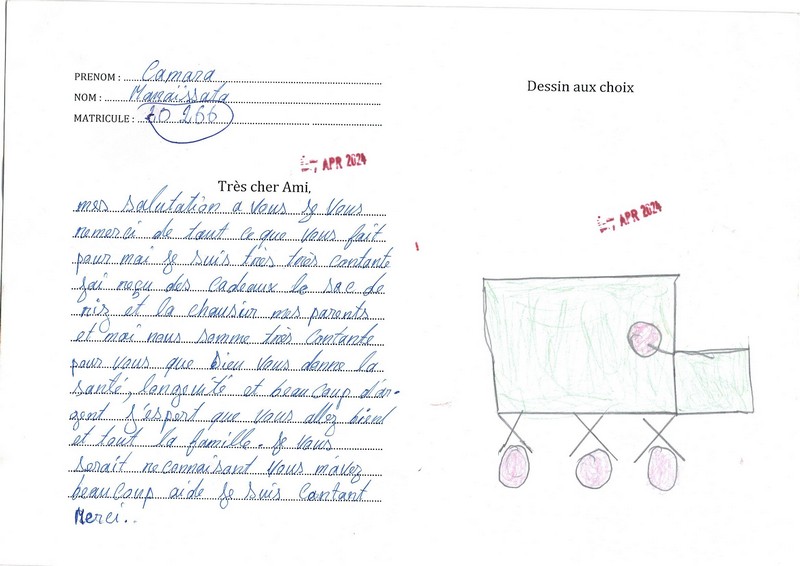 PRENOM : Camara
NOM : Manaïssata
MATRICULE : 20 266
APR 2024
Très cher Ami,
mes salutation a vous Je vous
remerci de tout ce que vous fait
pour mai Je suis très très contante
j'ai reçu des cadeaux le sac de
riz et la chausiur mes parents
et mai nous somme très contante
pour vous que Dieu vous donne la
santé, longeuité et beaucoup d'ar-
gent j'espert que vous allez biend
et tout la famille. Je vous
serait reconnaisant vous m'avez
beaucoup aide Je suis contant
Merci..
Dessin aux choix
APR 2024